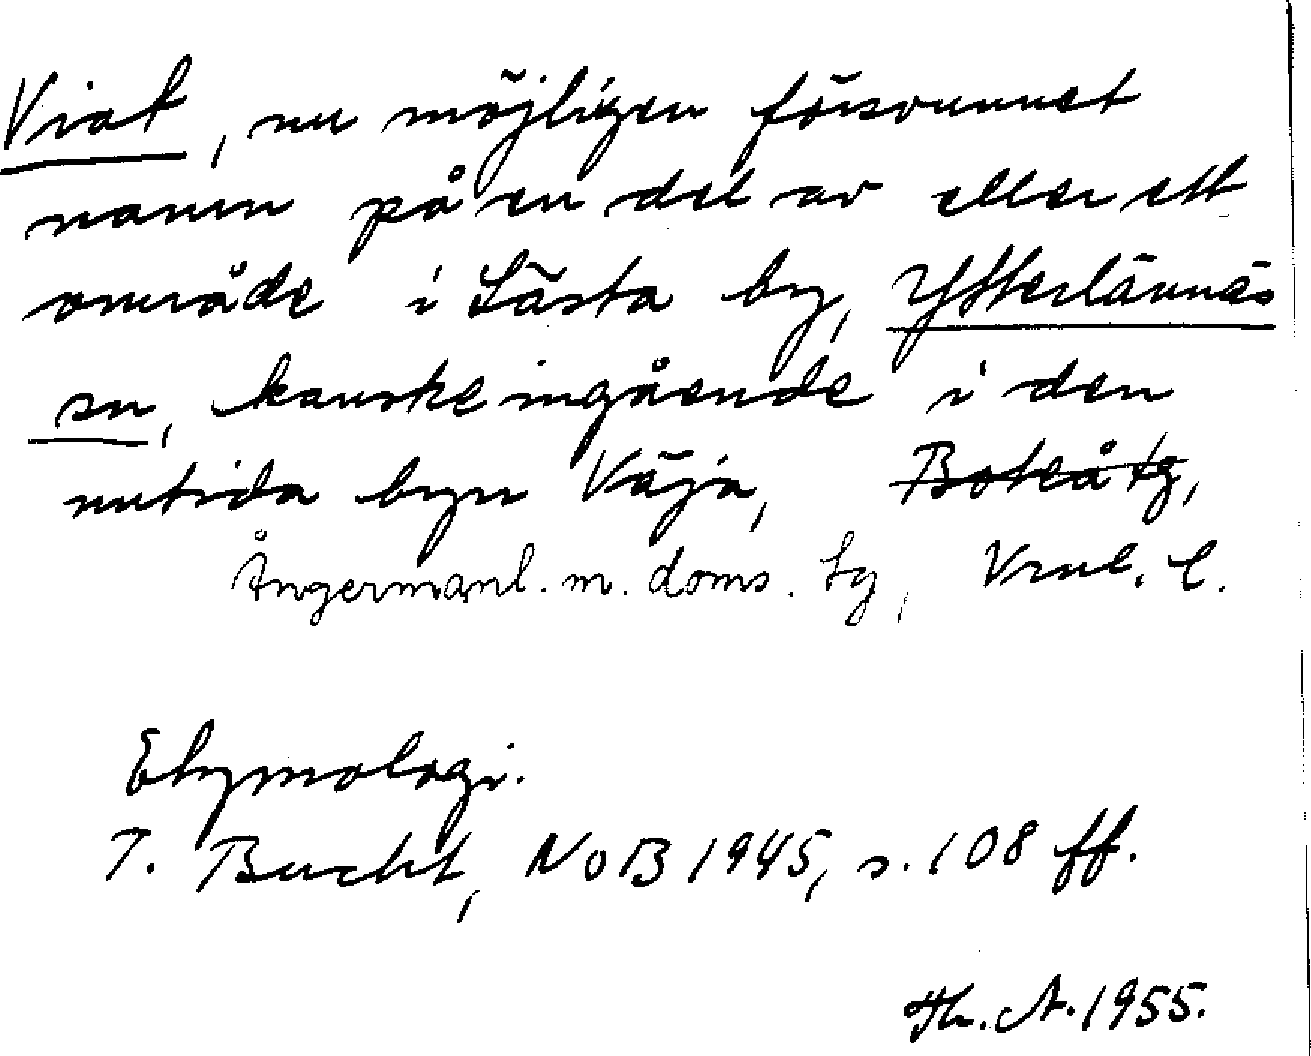 Viat, nu möjligen försvunnet
namn på en del av eller ett
område i Lästa by, Ytterlännäs
sn, kanske ingående i den
nutida byn Väja, Boteå tg,
Ångermanl. m. doms. tg, Vnl. l.
Etymologi.
T. Bucht, NoB 1945, s. 108 ff.
Th. A. 1955.